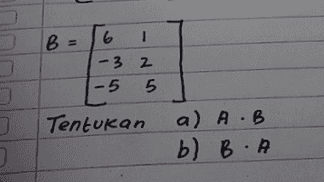 B = [6 1
-3 2
-5 5]
Tentukan a) A . B
b) B . A